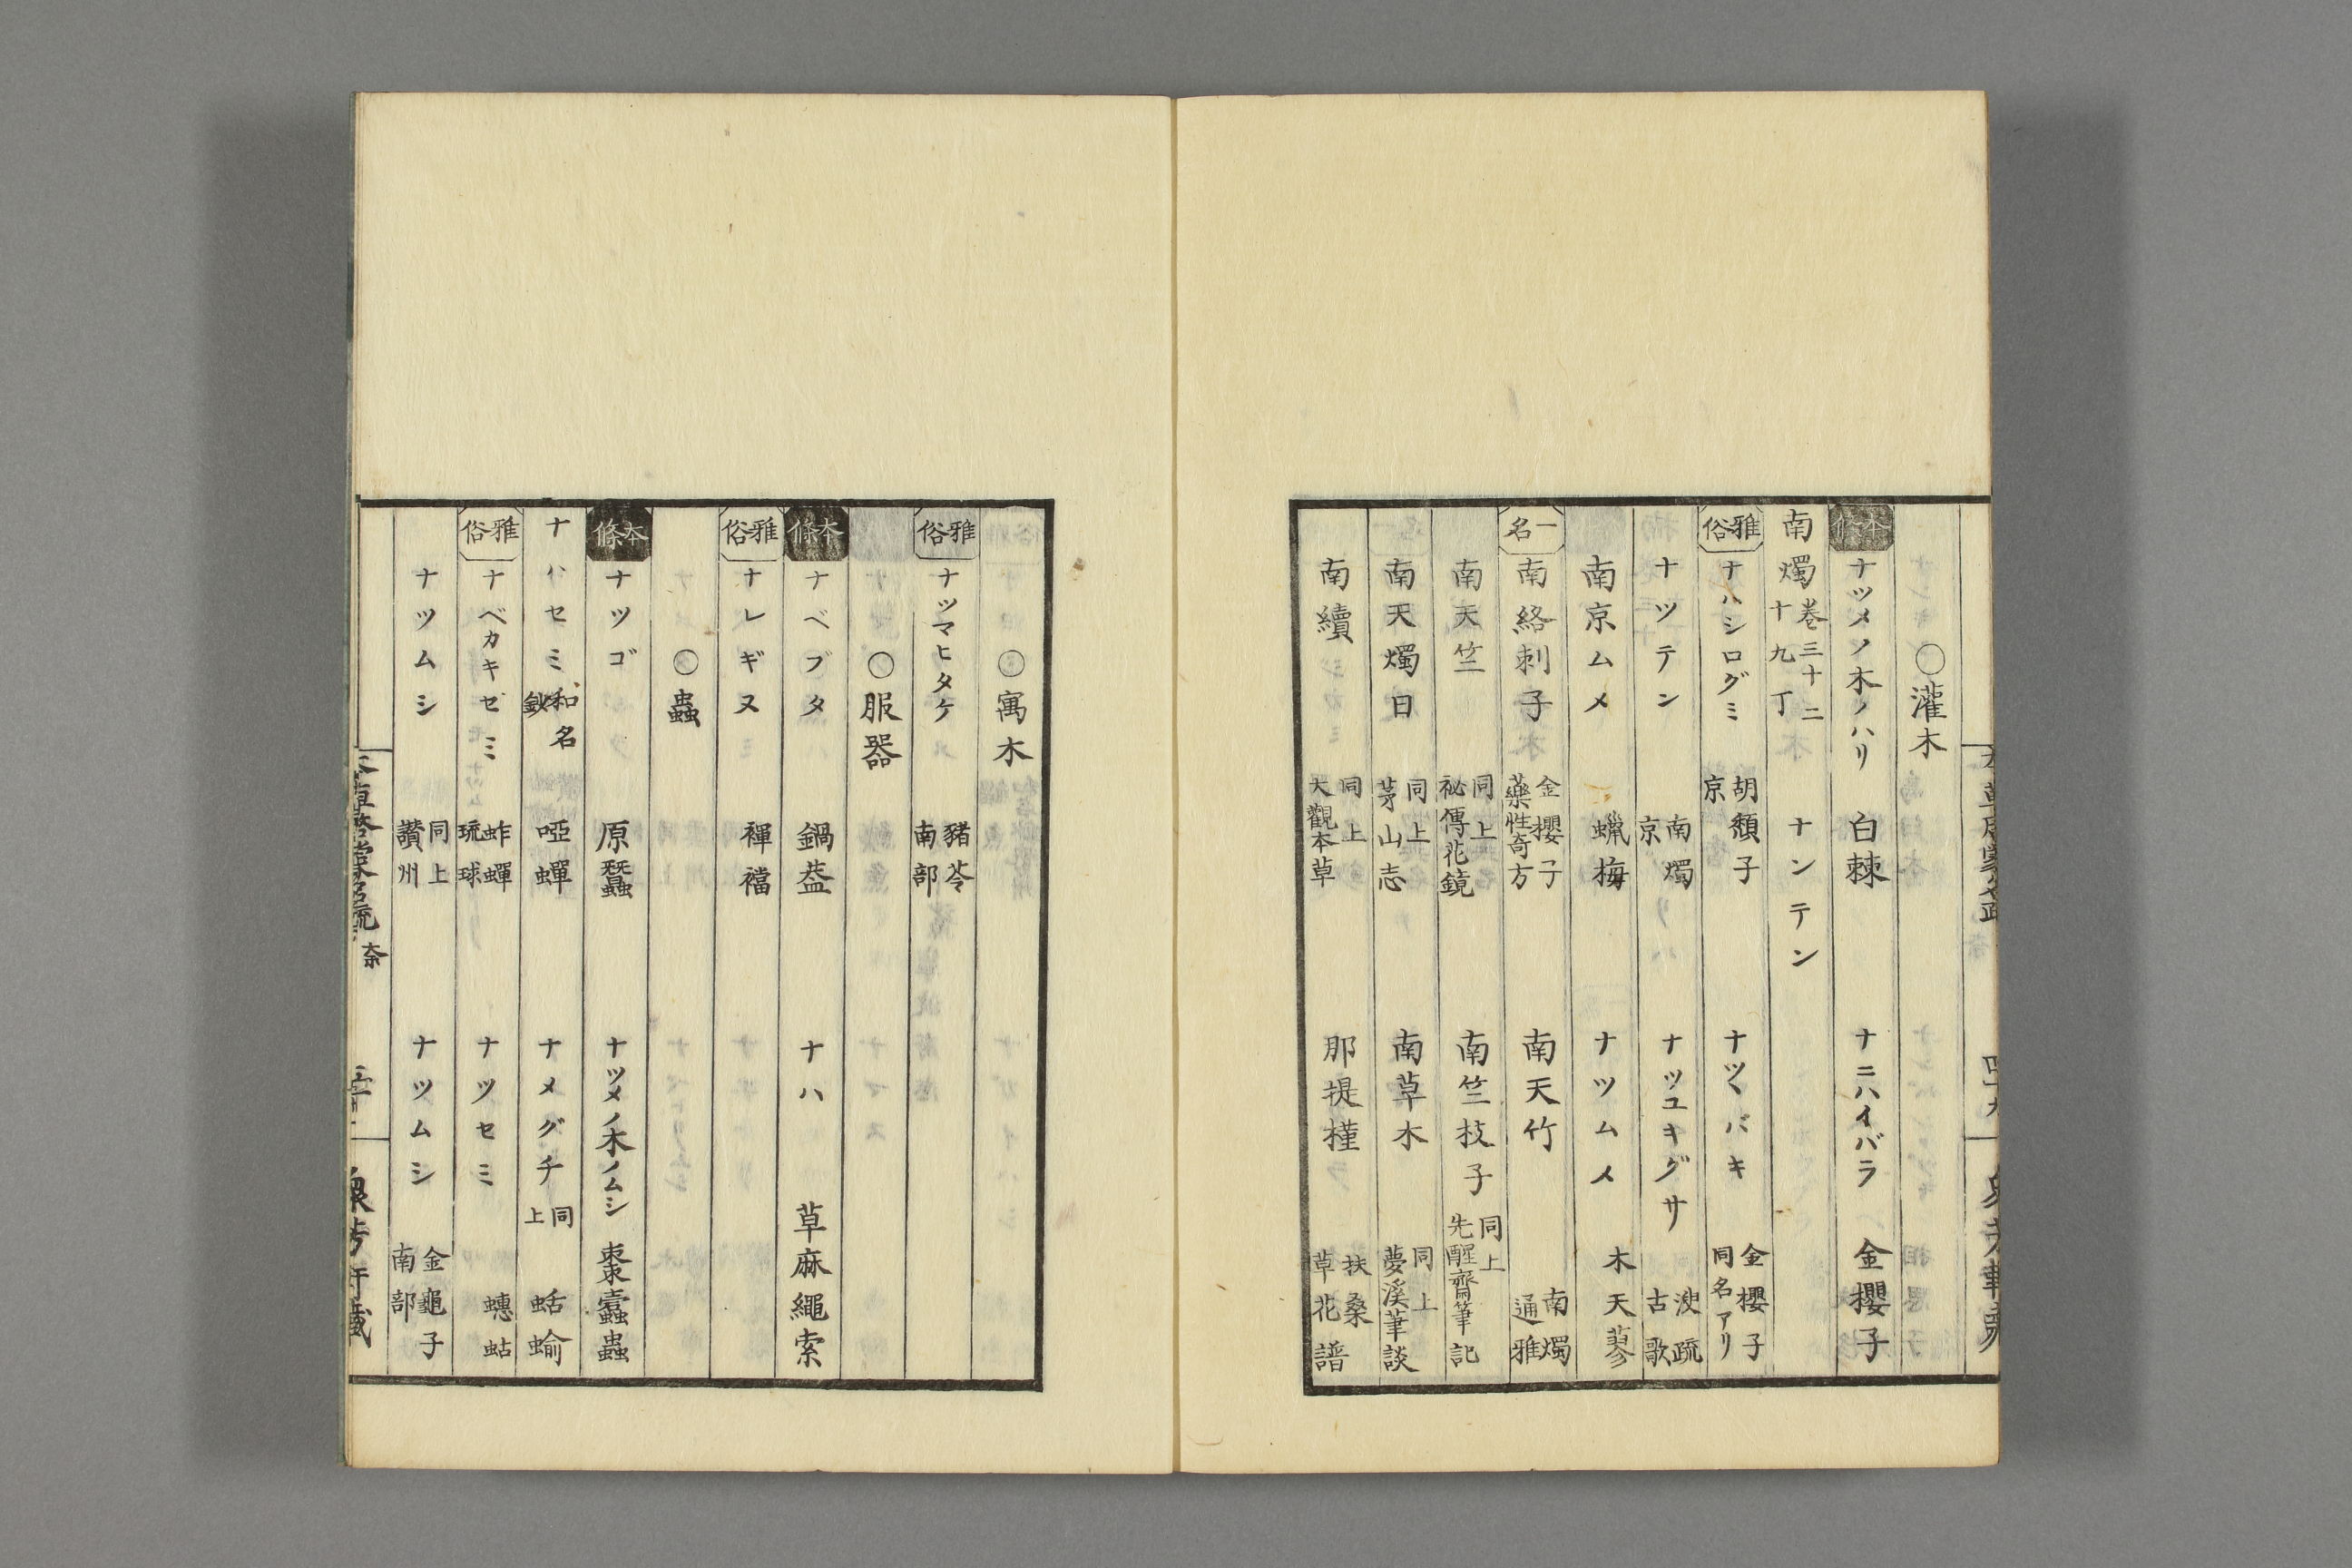 ○灌木
本條 ナツメノ木ノハリ 白棘 ナニハイバラ 金櫻子
南燭 卷三十二 十九丁 ナンテン
雅俗 ナハシログミ 胡頽子 京 ナツヽバキ 金櫻子 同名アリ
ナツテン 南燭 京 ナツユキグサ 溲疏 古歌
南京ムメ 蝋梅 ナツムメ 木天蓼
一名 南絡刺子 金櫻子 藥性奇方 南天竹 南燭 通雅
南天竺 同上 祕傳花鏡 南竺枝子 同上 先醒齋筆記
南天燭日 同上 茅山志 南草木 同上 夢溪筆談
南續 同上 大觀本草 那提槿 扶桑 草花譜
○寓木
雅俗 ナツマヒタケ 豬苓 南部
○服器
本條 ナベブタ 鍋葢 ナハ 草麻繩索
雅俗 ナレギヌ 襌襠
○蟲
本條 ナツゴ 原蠶 ナツメノ木ノムシ 棗蠹蟲
ナハセミ 和名鈔 啞蟬 ナメグチ 同上 蛞蝓
雅俗 ナベカキゼミ 蚱蟬 琉球 ナツセミ 蟪蛄
ナツムシ 同上 讚州 ナツムシ 金龜子 南部
奈